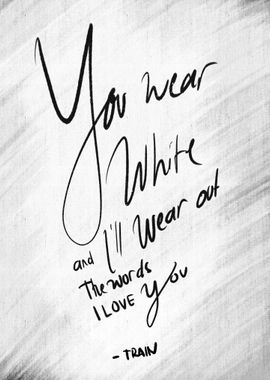 You wear
White
and I'll wear out
The words
I LOVE YOU
- TRAIN